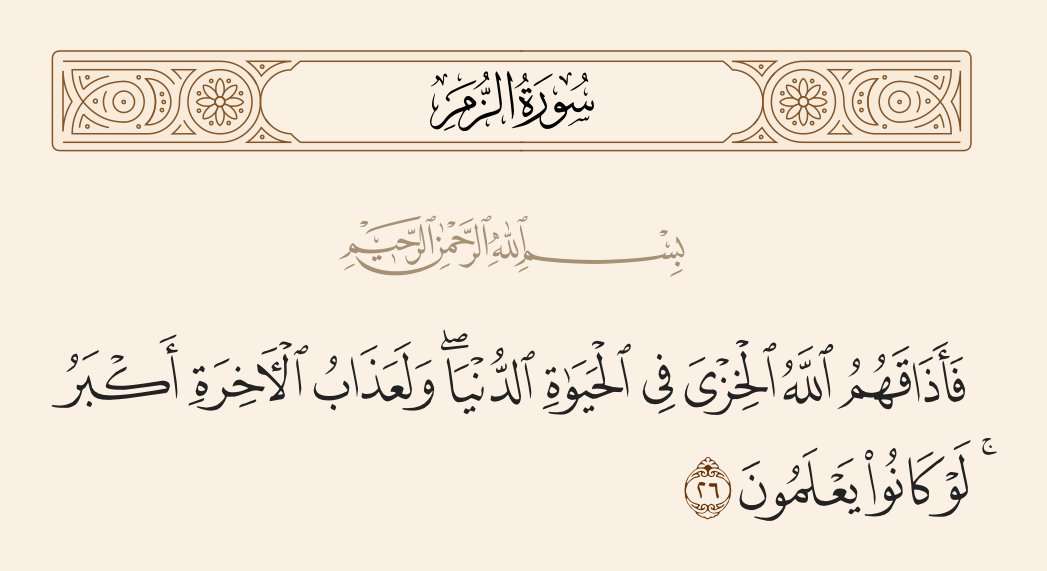 سُورَةُ الزُّمَرِ
بِسْمِ ٱللَّهِ ٱلرَّحْمَٰنِ ٱلرَّحِيمِ
فَأَذَاقَهُمُ ٱللَّهُ ٱلْخِزْىَ فِى ٱلْحَيَوٰةِ ٱلدُّنْيَا ۖ وَلَعَذَابُ ٱلْـَٔاخِرَةِ أَكْبَرُ
ۚ لَوْ كَانُوا۟ يَعْلَمُونَ ٢٦